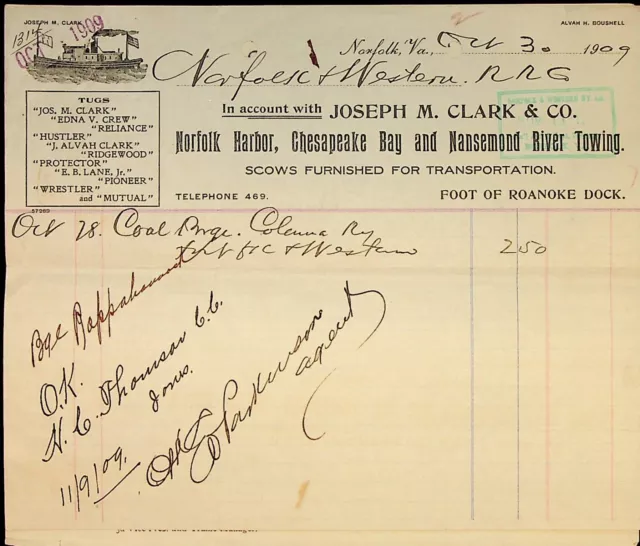 JOSEPH M. CLARK
ALVAH H. BOUSHELL
1314
OCT 1909
Norfolk, Va., Oct 30 1909
Norfolk & Western R R Co
In account with JOSEPH M. CLARK & CO.
Norfolk Harbor, Chesapeake Bay and Nansemond River Towing.
SCOWS FURNISHED FOR TRANSPORTATION.
TELEPHONE 469.
FOOT OF ROANOKE DOCK.
TUGS
"JOS. M. CLARK"
"EDNA V. CREW"
"RELIANCE"
"HUSTLER"
"J. ALVAH CLARK"
"RIDGEWOOD"
"PROTECTOR"
"E. B. LANE, Jr."
"PIONEER"
"WRESTLER"
and "MUTUAL"
Oct 28. Coal Brge. Colanna Ry
to N & Western 2 50
Bge Rappahannock
O.K.
H. C. Thomson C.C.
Jones.
11/9/09.
OK Parkinson
agent